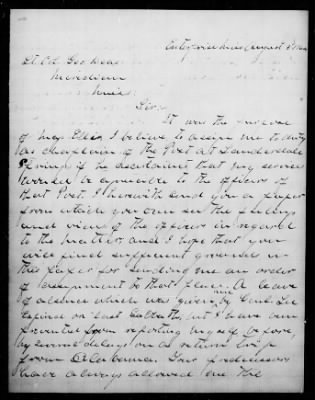 Enterprise Miss August 8
Lt. Col. Geo
Meridian
Miss.
Sir:
It was the
of Maj Ellis, I believe to assign me to duty
as chaplain of the Post at Lauderdale
Springs if he ascertained that my service
would be agreeable to the officers of
that Post. I herewith send you a paper
from which you can see the feelings
and views of the officers in regard
to the matter, and I hope that you
will find sufficient grounds in
this paper for sending me an order
of assignment to that place. A leave
of absence which was given me by Genl Lee
expired on last Sabbath, but I have been
prevented from reporting myself before,
by some delays on a return trip
from Alabama. Your predecessors
have always allowed me the